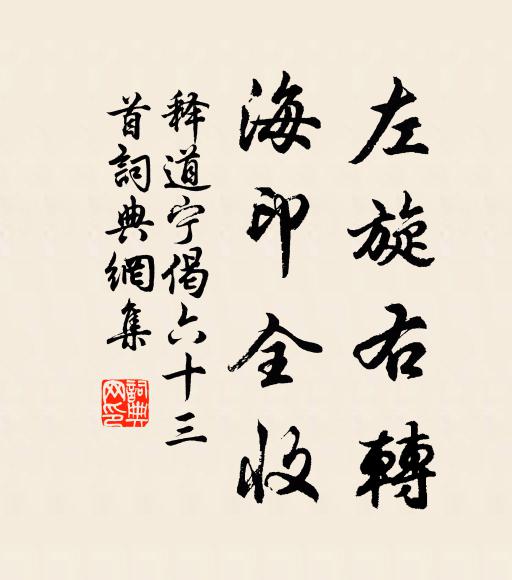 左旋右轉
海印全收
释道宁偈六十三
首詞典網集
詞典
网印